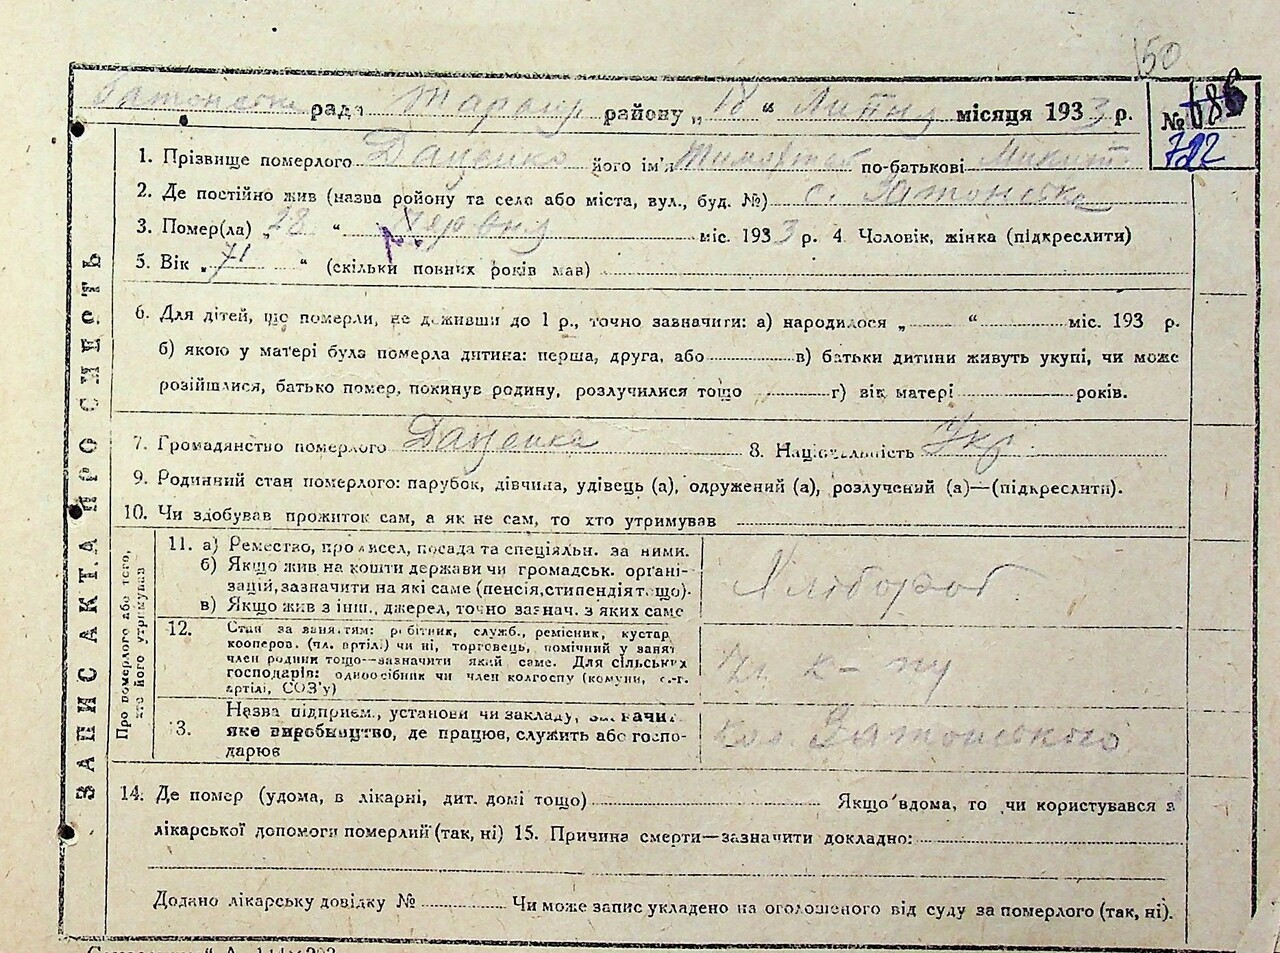 150
Затонська рада Таращ району „18“ Липня місяця 1933 р. № 686
722
1. Прізвище померлого Даценко його ім'я Тимофтей по-батькові Микит.
2. Де постійно жив (назва ройону та село або міста, вул., буд. №) с. Затонська
3. Помер(ла) „28“ Червня міс. 1933 р. 4. Чоловік, жінка (підкреслити)
5. Вік „71“ (скільки повних років мав)
6. Для дітей, що померли, не доживши до 1 р., точно зазначити: а) народилося „ “ міс. 193 р.
б) якою у матері була померла дитина: перша, друга, або в) батьки дитини живуть укупі, чи може
розійшлися, батько помер, покинув родину, розлучилися тощо г) вік матері років.
7. Громадянство померлого Даценка 8. Національність Укр.
9. Родинний стан померлого: парубок, дівчина, удівець (а), одружений (а), розлучений (а)—(підкреслити).
10. Чи здобував прожиток сам, а як не сам, то хто утримував
ЗАПИС АКТА ПРО СМЕСТЬ
Про померлого або того,
хто його утримував
11. а) Ремество, промисел, посада та спеціяльн. за ними.
б) Якщо жив на кошти держави чи громадськ. органі-
зацій, зазначити на які саме (пенсія, стипендія т. що).
в) Якщо жив з інш., джерел, точно зазнач. з яких саме
Хлібороб
12. Стан за заняттям: робітник, служб., ремісник, кустар
кооперов. (чл. артілі) чи ні, торговець, помічний у занят
член родини тощо—зазначити який саме. Для сільських
господарів: одноосібник чи член колгоспу (комуни, с.-г.
артілі, СОЗ'у)
Чл. к-пу
13. Назва підприєм., установи чи закладу, зазначит.
яке виробництво, де працює, служить або госпо-
дарює
Кол. Затонського
14. Де помер (удома, в лікарні, дит. домі тощо) Якщо вдома, то чи користувався з
лікарської допомоги померлий (так, ні) 15. Причина смерти—зазначити докладно:
Додано лікарську довідку № Чи може запис укладено на оголошеного від суду за померлого (так, ні).